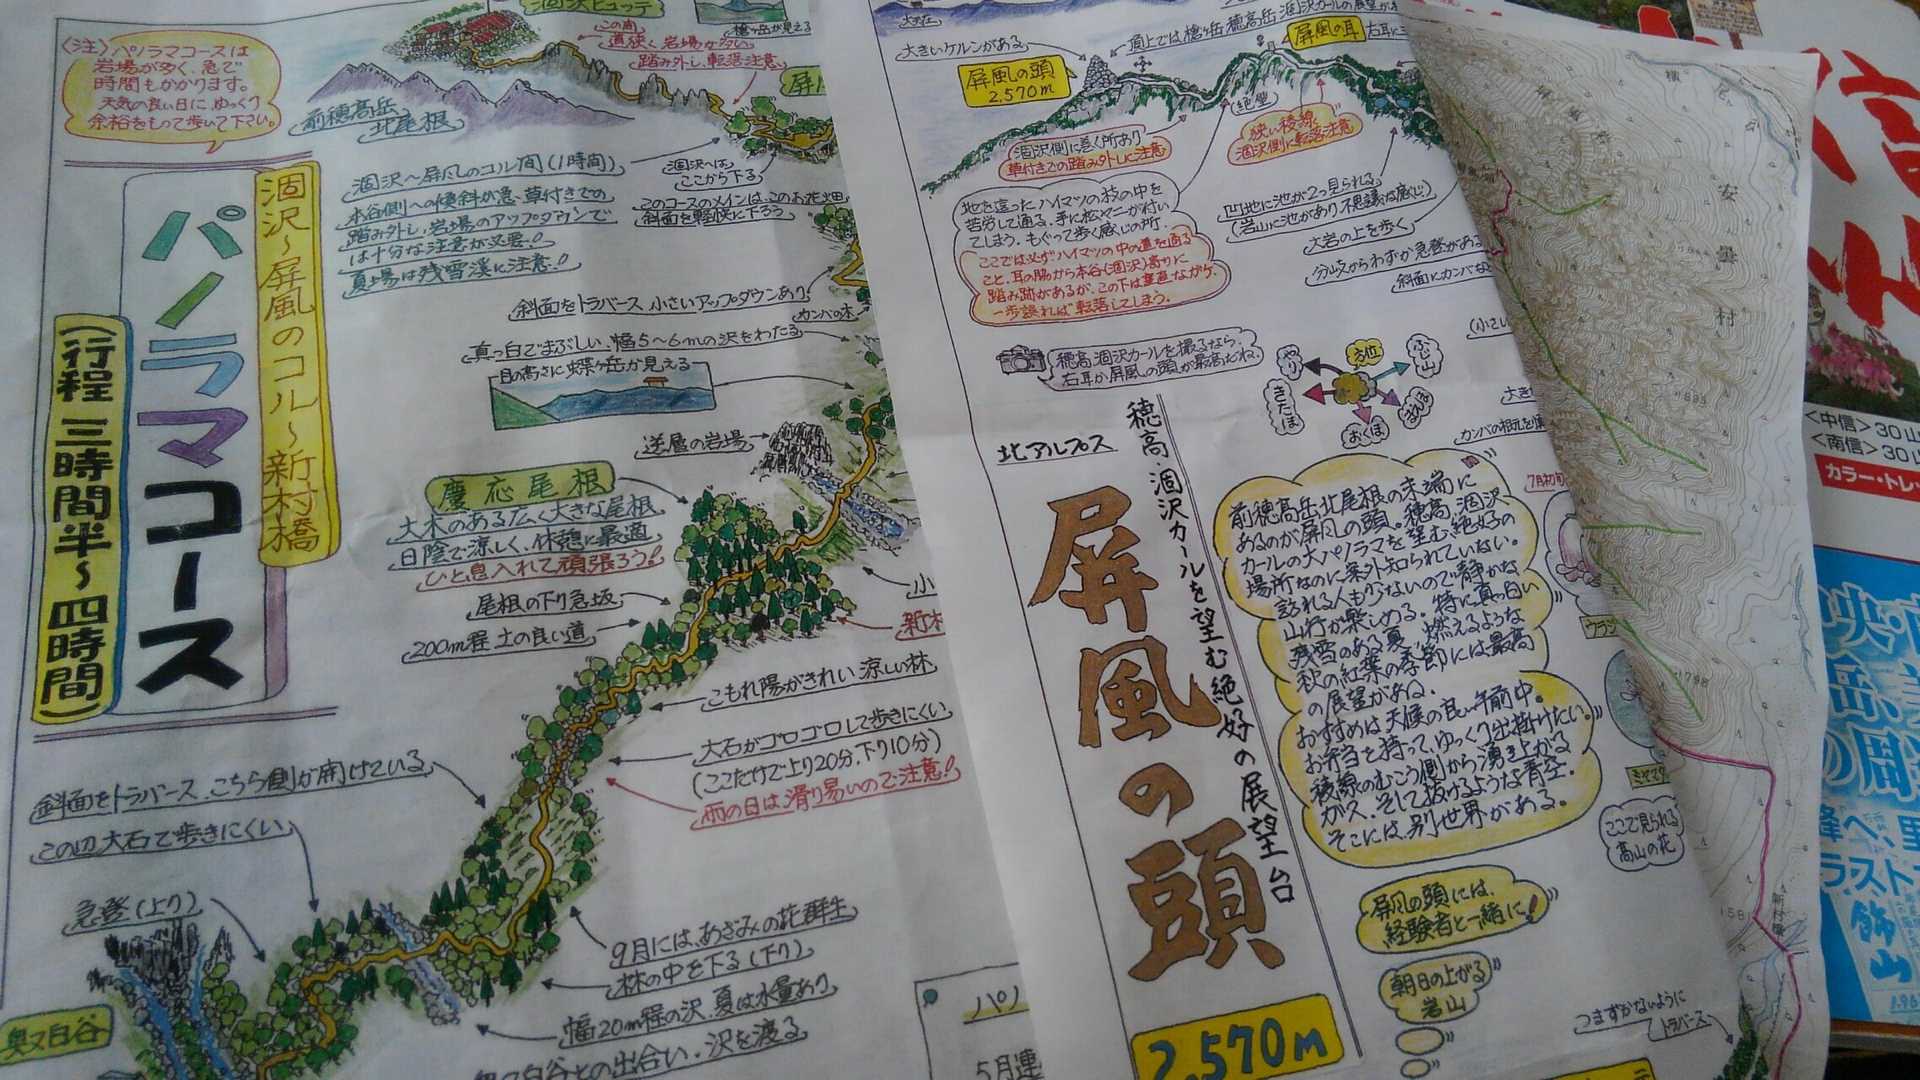 涸沢ヒュッテ
〈注〉パノラマコースは
岩場が多く、急で
時間もかかります。
天気の良い日に、ゆっくり
余裕をもって歩いて下さい。
前穂高岳
北尾根
この間
道狭く岩場が多い
踏み外し、転落注意
槍ヶ岳が見える
涸沢～屏風のコル～新村橋
パノラマコース
(行程 三時間半～四時間)
涸沢～屏風のコル間(1時間)
本谷側への傾斜が急、草付きでの
踏み外し、岩場のアップダウンで
は十分な注意が必要!
夏場は残雪渓に注意!
涸沢へは
ここから下る
このコースのメインは、このお花畑
斜面を軽快に下ろう
斜面をトラバース 小さいアップダウンあり
カンバの木
真っ白でまぶしい、幅5～6mの沢をわたる
目の高さに蝶ヶ岳が見える
逆層の岩場
慶応尾根
大木のある広く大きな尾根
日陰で涼しく、休憩に最適
ひと息入れて頑張ろう!
尾根の下り急坂
200m程 土の良い道
こもれ陽がきれい 涼しい林
大石がゴロゴロして歩きにくい
(ここだけで上り20分、下り10分)
雨の日は滑り易いので注意!
斜面をトラバース、こちら側が開けている
この辺 大石で歩きにくい
急登(上り)
9月には、あざみの花群生
林の中を下る(下り)
幅20m程の沢、夏は水量あり
奥又白谷との出合い、沢を渡る
奥又白谷
パノ
5月連
大きいケルンがある
屏風の頭
2,570m
頂上では槍ヶ岳 穂高岳 涸沢カールの展望が
屏風の耳
右耳に
絶壁
涸沢側に巻く所あり
草付きでの踏み外しに注意
狭い稜線
涸沢側に転落注意
地を這ったハイマツの枝の中を
苦労して通る、手に松ヤニが付い
てしまう。もぐって歩く感じの所。
ここでは必ずハイマツの中の道を通る
こと、耳の脇から本谷(涸沢)寄りに
踏み跡があるが、この下は垂直なガケ。
一歩誤れば転落してしまう。
凹地に池が2つ見られる
岩山に池があり、不思議な感じ
大岩の上を歩く
分岐からわずか急登がある
斜面にカンバな
穂高 涸沢カールを撮るなら、
右耳か屏風の頭が最高だね。
方位
やり
ふじ山
きたほ
おくほ
まえほ
カンバの根元を
北アルプス
穂高・涸沢カールを望む絶好の展望台
屏風の頭
2,570m
前穂高岳北尾根の末端に
あるのが屏風の頭。穂高、涸沢
カールの大パノラマを望む絶好の
場所なのに案外知られていない。
訪れる人も少ないので静かな
山行が楽しめる。特に真っ白い
残雪のある夏、燃えるような
秋の紅葉の季節には最高
の展望がある。
おすすめは天候の良い午前中。
お弁当を持って、ゆっくり出掛けたい。
稜線のむこう側から湧き上がる
ガス、そして抜けるような青空。
そこには、別世界がある。
屏風の頭には、
経験者と一緒に!
朝日の上がる
岩山
7月初旬
ここで見られる
高山の花
つまずかないように
トラバース
安曇村
1581
<中信>30山
<南信>30山
カラー・トレッ